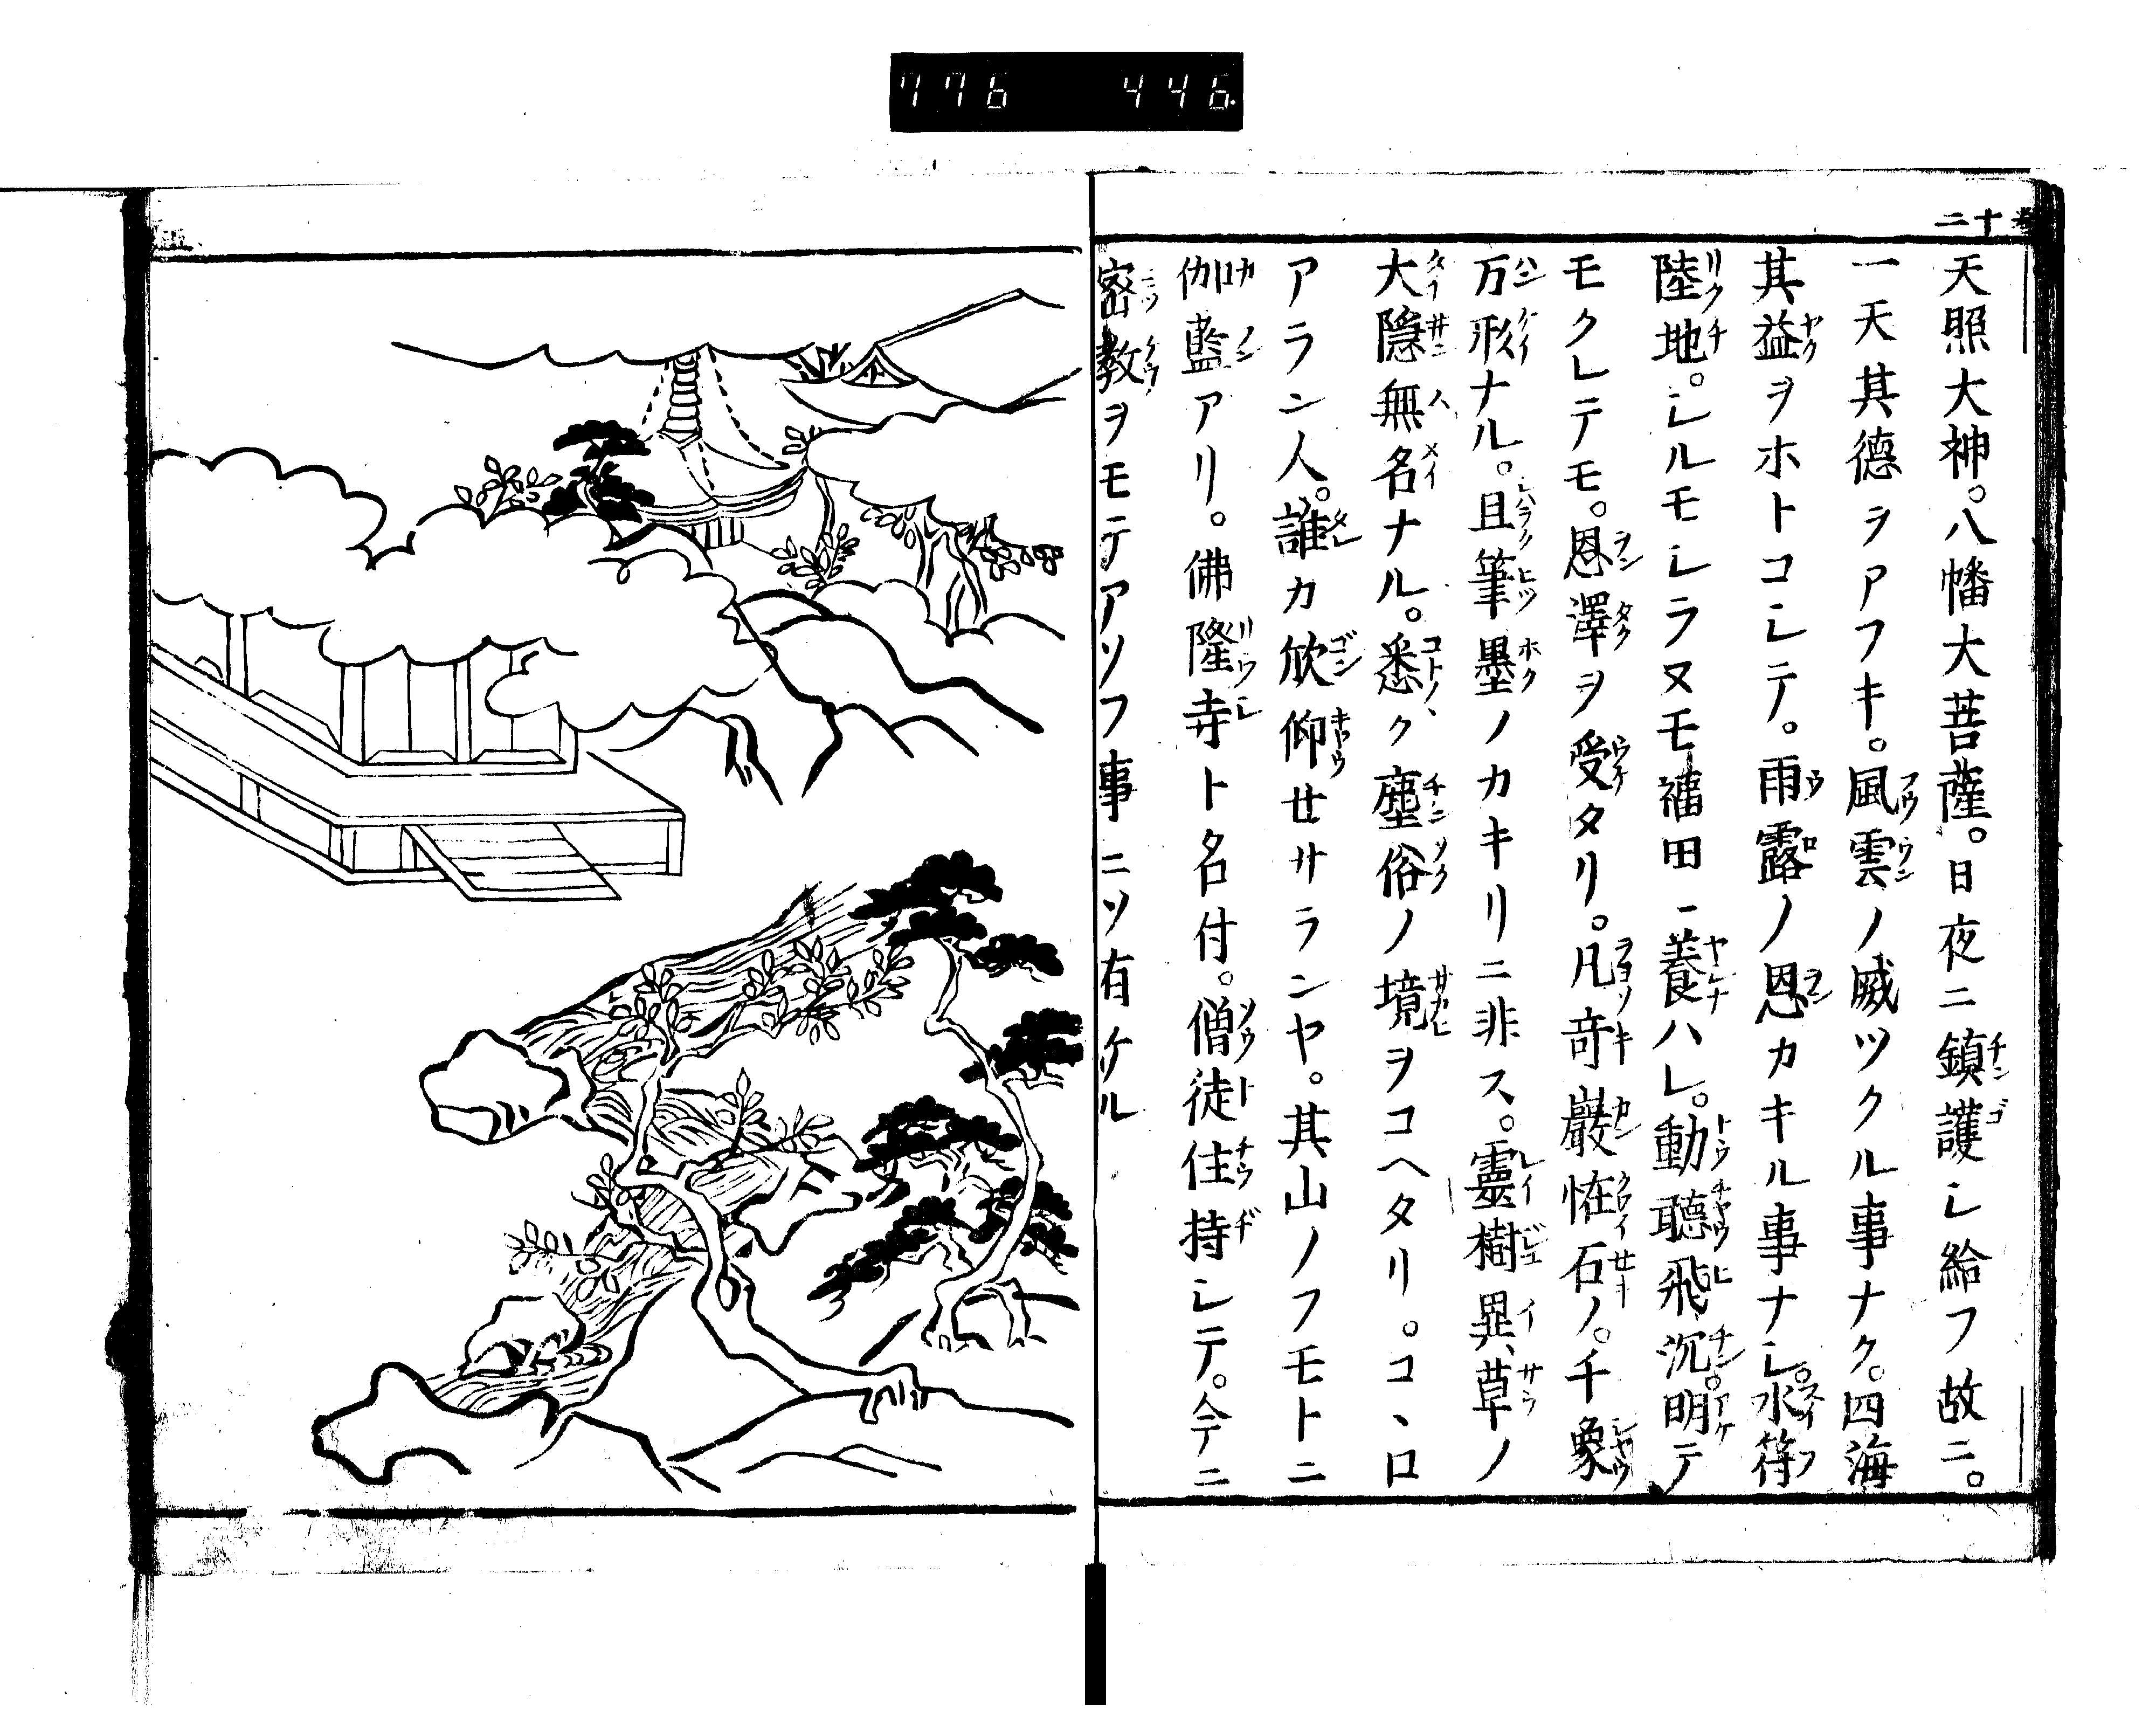 776 446
巻十二
天照大神。八幡大菩薩。日夜ニ鎮護シ給フ故ニ。
一天其徳ヲアフキ。風雲ノ威ツクル事ナク。四海
其益ヲホトコシテ。雨露ノ恩カキル事ナシ。水符
陸地。シルモシラヌモ福田ニ養ハレ。動聴飛沉。明テ
モクレテモ。恩澤ヲ受タリ。凡奇巖恠石ノ。千象
万形ナル。且筆墨ノカキリニ非ス。靈樹異草ノ
大隠無名ナル。悉ク塵俗ノ境ヲコヘタリ。コヽロ
アラン人。誰カ欣仰セサランヤ。其山ノフモトニ
伽藍アリ。佛隆寺ト名付。僧徒住持シテ。今ニ
密教ヲモテアソフ事ニソ有ケル